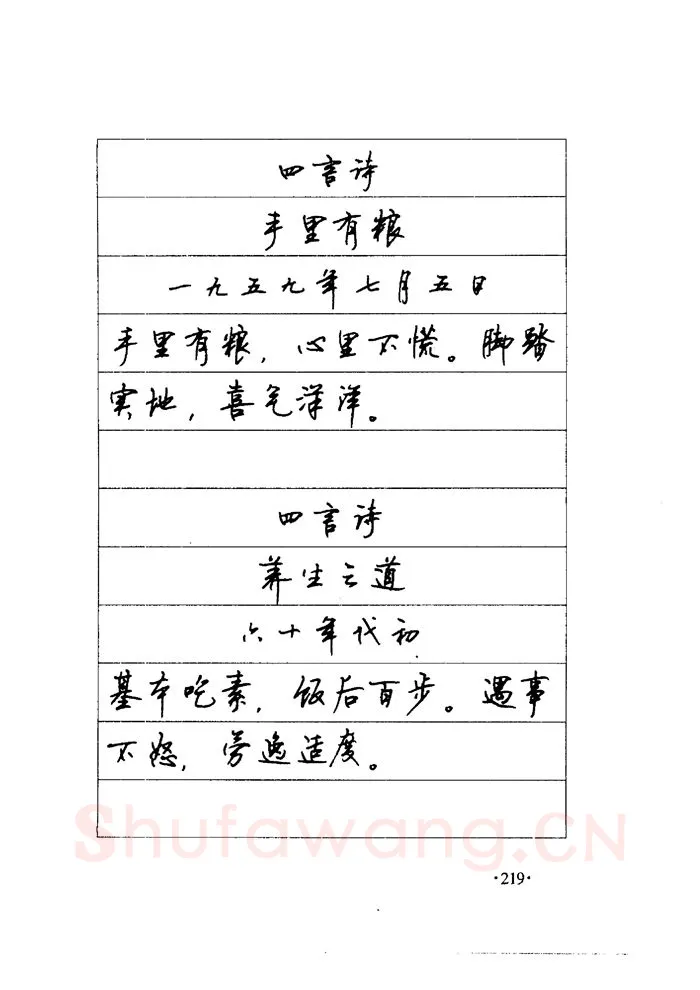 四言诗
手里有粮
一九五九年七月五日
手里有粮，心里不慌。脚踏
实地，喜气洋洋。
四言诗
养生之道
六十年代初
基本吃素，饭后百步。遇事
不怒，劳逸适度。
Shufawang.CN
·219·